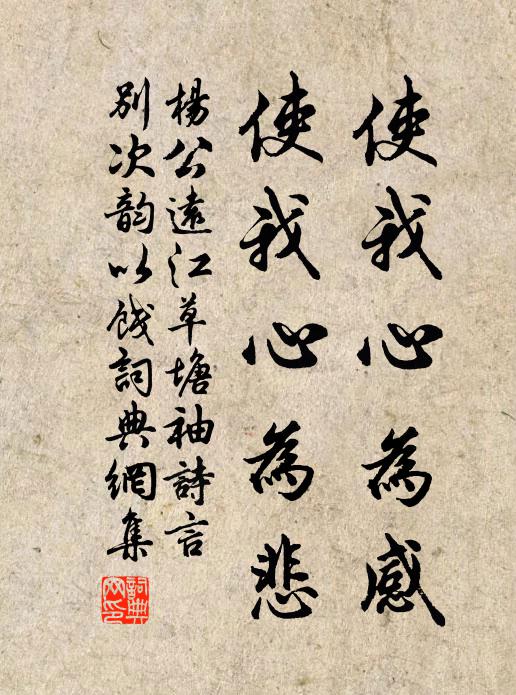 使我心為感
使我心為悲
楊公遠江草塘袖詩言
別次韵以餞詞典網集
詞典
网印